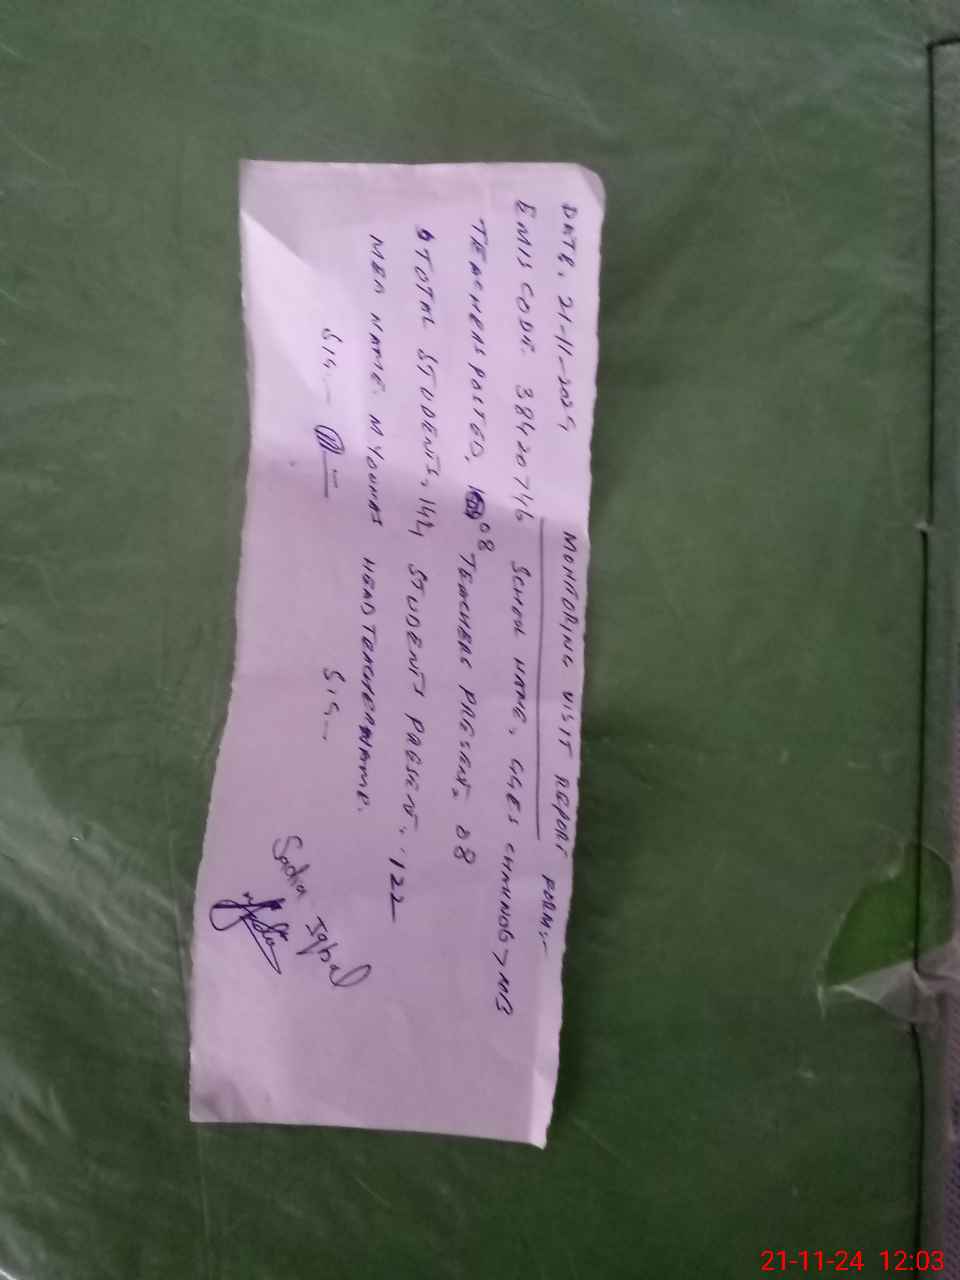 DATE. 21-11-2024 MONRORING VISIT REPORT FORM:-
EMIS CODE. 38420746 SCHOOL NAME. GGES
TEACHERS POSTED. 08 TEACHERS PRESENT. 08
TOTAL STUDENTS. 144 STUDENTS PRESENT. 122
MEA NAME. M YOUNAS HEADTEACHERNAME.
Sadia Iqbal
SIG.- SIG.-
21-11-24 12:03